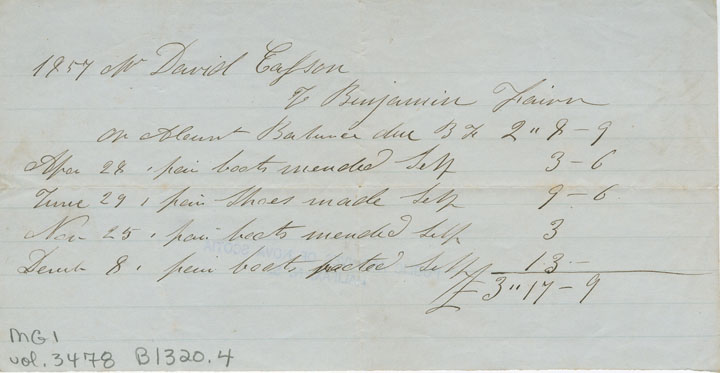 1857 Mr David Casson
To Benjamin Fairn
on Acount Balance due B F 2 " 8 - 9
Aper 28 1 pair boots mended Self 3 - 6
June 29 1 pair Shoes made Self 9 - 6
Nov 25 1 pair boots mended Self 3
Decmb 8 1 pair boots Self 13 -
£ 3 " 17 - 9
MG1
vol. 3478 B1320.4